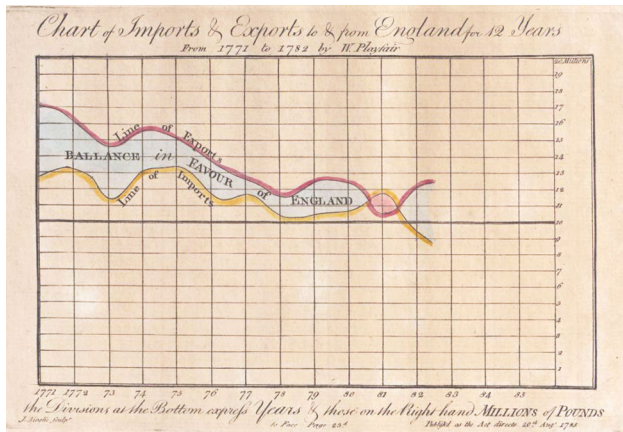 Chart of Imports & Exports to & from England for 12 Years
From 1771 to 1782 by W. Playfair
20 Millions
19
18
17
16
15
14
13
12
11
10
9
8
7
6
5
4
3
2
1
Line of Exports
BALLANCE in FAVOUR of ENGLAND
Line of Imports
1771 1772 73 74 75 76 77 78 79 80 81 82 83 84 85
The Divisions at the Bottom express Years & those on the Right hand MILLIONS of POUNDS
J. Ainslie Sculpt
to Face Page 23d
Publish'd as the Act directs 20th Augt 1785